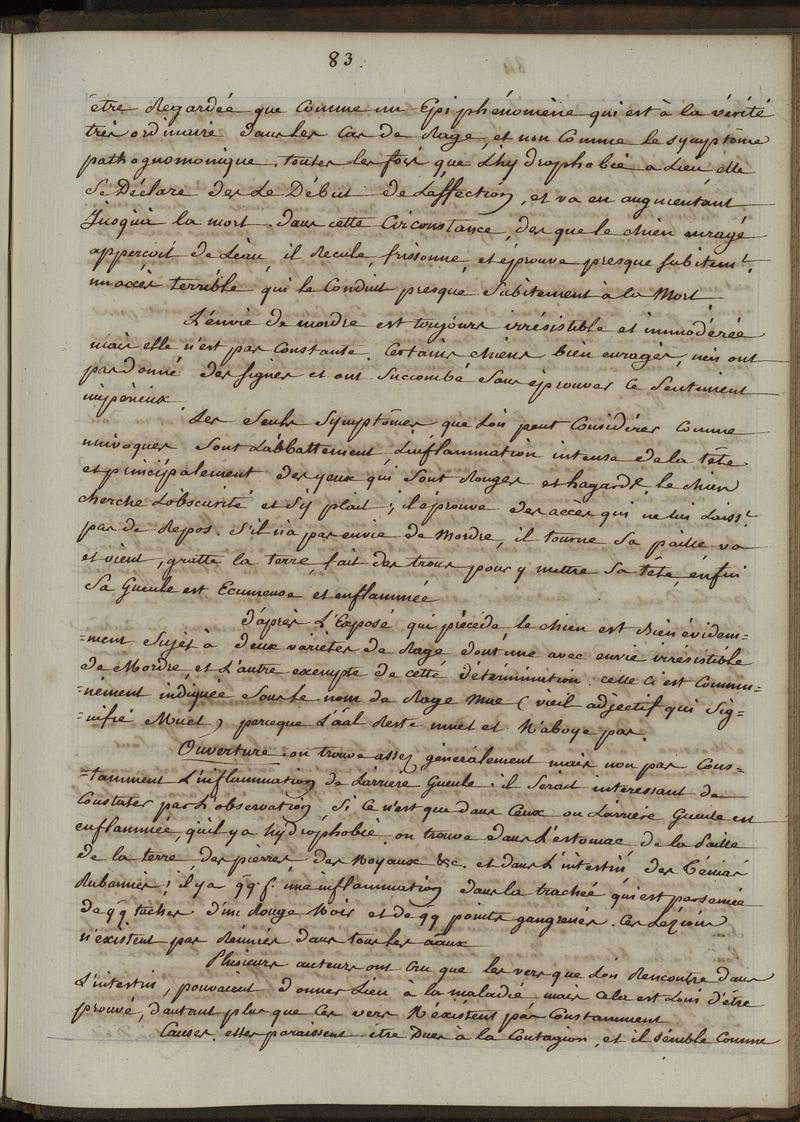 83.
être Regardée que Comme un Epiphénomène qui est à la vérité
très ordinaire dans les Cas de Rage, et non Comme le symptôme
pathognomonique. toutes les fois que L'hydrophobie a Lieu elle
Se Déclare des Le Début de L'affection, et va en augmentant
Jusqu'à la mort. dans cette Circonstance, des que le chien enragé
apperçoit de L'eau, il Recule, frissonne, et éprouve presque Subitemt.
un accès terrible qui le Conduit presque Subitement à la Mort.
L'envie de mordre est toujours irrésistible et immodérée
mais elle n'est pas Constante. Certains chiens bien enragés, n'en ont
pas donné des signes et ont Succombé Sans éprouver Ce Sentiment
impérieux.
Les Seuls Symptômes que L'on peut Considérer Comme
univoques Sont L'abbattement, L'inflammation intense de la tête
et principalement des yeux qui Sont Rouges et hagards, le chien
cherche L'obscurité et S'y plait; il éprouve des accès qui ne lui Laisst.
pas de Repos. S'il n'a pas envie de Mordre, il tourne Sa paille va
et vient, gratte la terre, fait des trous pour y mettre Sa tête, enfin
Sa Gueule est Ecumeuse et enflammée
D'après L'Exposé qui précède, le chien est Bien évidem-
-ment Sujet à deux variétés de Rage dont une avec envie irrésistible
de Mordre, et L'autre exempte de cette détermination. celle Ci est Commu-
-nément indiquée Sous le nom de Rage Mue (vieil adjectif qui Sig-
-nifie Muet) parceque L'aal Reste muet et N'aboye pas.
Ouverture. on trouve assez généralement mais non pas Cons-
-tamment L'inflammation de L'arriere Gueule. il Serait interessant de
Constater par L'observation, Si Ce n'est que dans Ceux ou L'arriere Gueule est
enflammée, qu'il y a hydrophobie. on trouve dans L'estomac de la Paille
de la terre, des pierres, des Noyaux &c. et dans L'intestin des Ténias
Rubannés; il y a qq f. une inflammation dans la trachée qui est parsemée
de qq taches d'un Rouge Noir et de qq points gangrenés. Ces Lézions
n'existent pas Réunies dans tous les aaux
Plusieurs auteurs ont Cru que les vers que L'on Rencontre dans
L'intestin, pouvaient donner Lieu à la maladie, mais cela est Loin d'être
prouvé, d'autant plus que Ces vers N'existent pas Constamment
Causes. elles paraissent être Dues à la Contagion, et il Semble Comme